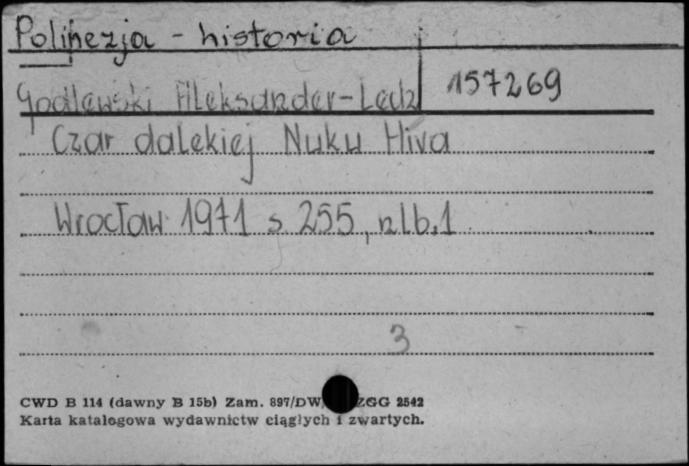 Polinezja - historia
Godlewski Aleksander-Lech 157269
Czar dalekiej Nuku Hiva
Wrocław 1971 s. 255, nlb.1
3
CWD B 114 (dawny B 15b) Zam. 897/DW ZGG 2542
Karta katalogowa wydawnictw ciągłych i zwartych.